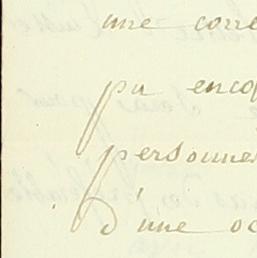 une corre
pu enco
personne
d'une oc